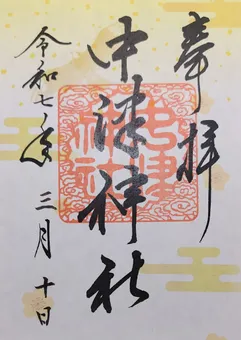 奉拝
中津神社
令和七年三月十日